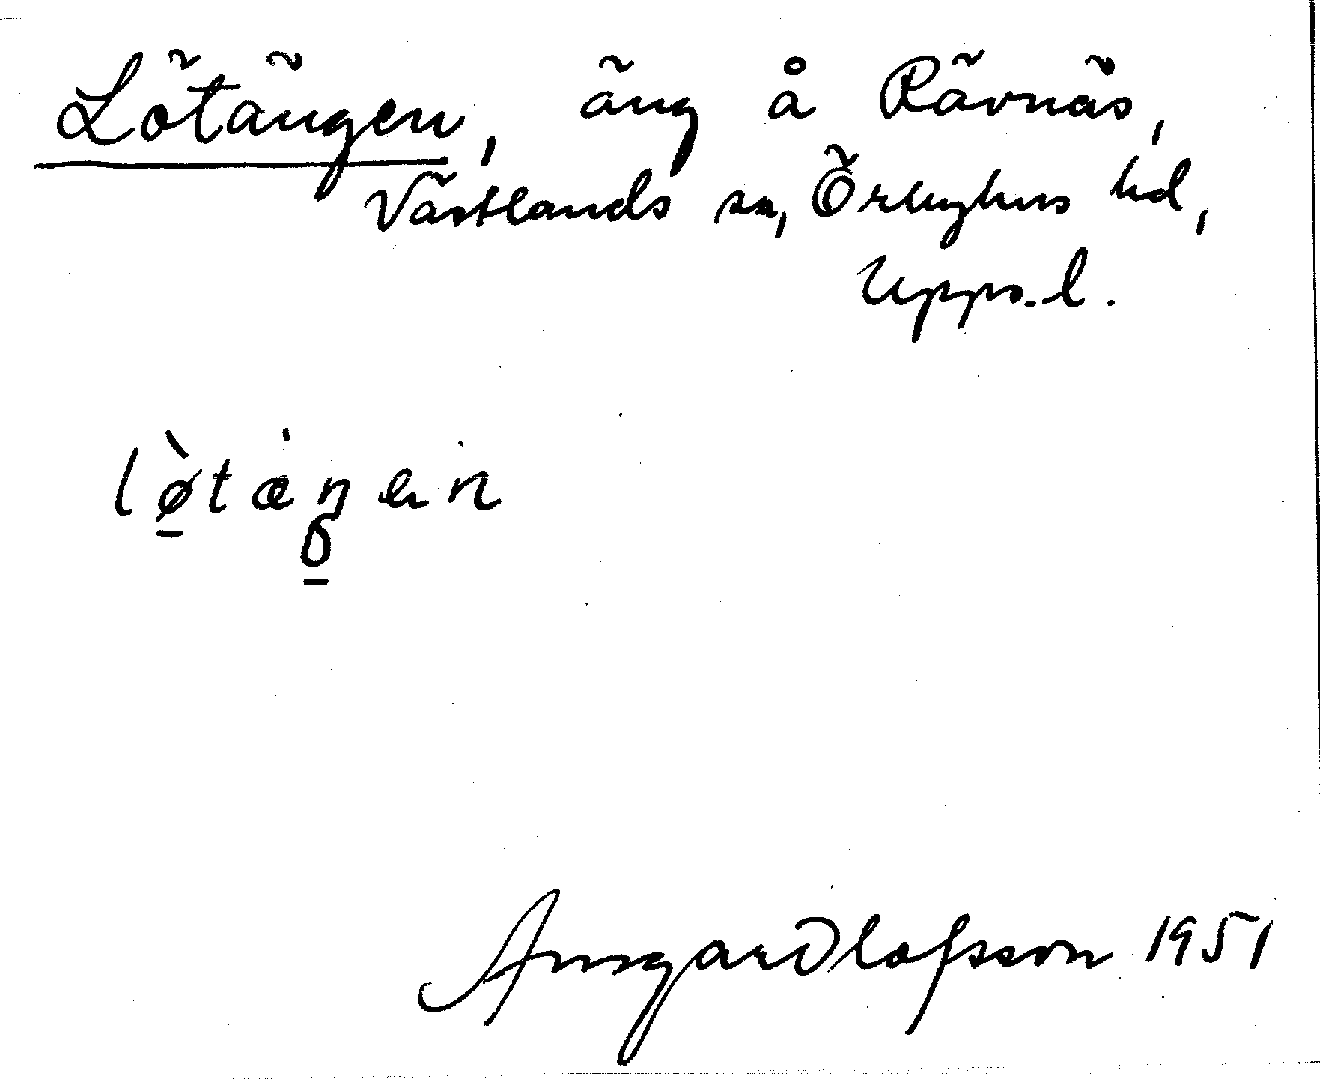 Lötängen, äng å Rävnäs,
Västlands sn, Örbyhus hd,
Upps.l.
lø̱̀tæŋen
Ansgar Olofsson 1951